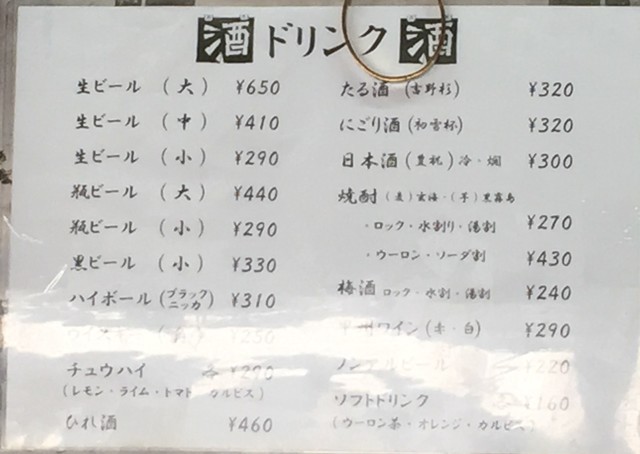 酒 ドリンク 酒
生ビール (大) ¥650
生ビール (中) ¥410
生ビール (小) ¥290
瓶ビール (大) ¥440
瓶ビール (小) ¥290
黒ビール (小) ¥330
ハイボール (ブラックニッカ) ¥310
¥250
チュウハイ ¥290
(レモン・ライム・トマト カルピス)
ひれ酒 ¥460
たる酒 (吉野杉) ¥320
にごり酒 (初雪杯) ¥320
日本酒 (豊祝) 冷・燗 ¥300
焼酎 (麦)玄海・(芋)黒霧島
・ロック・水割り・湯割 ¥270
・ウーロン・ソーダ割 ¥430
梅酒 ロック・水割・湯割 ¥240
州ワイン (赤・白) ¥290
ノンアルビール ¥220
ソフトドリンク ¥160
(ウーロン茶・オレンジ・カルピス)